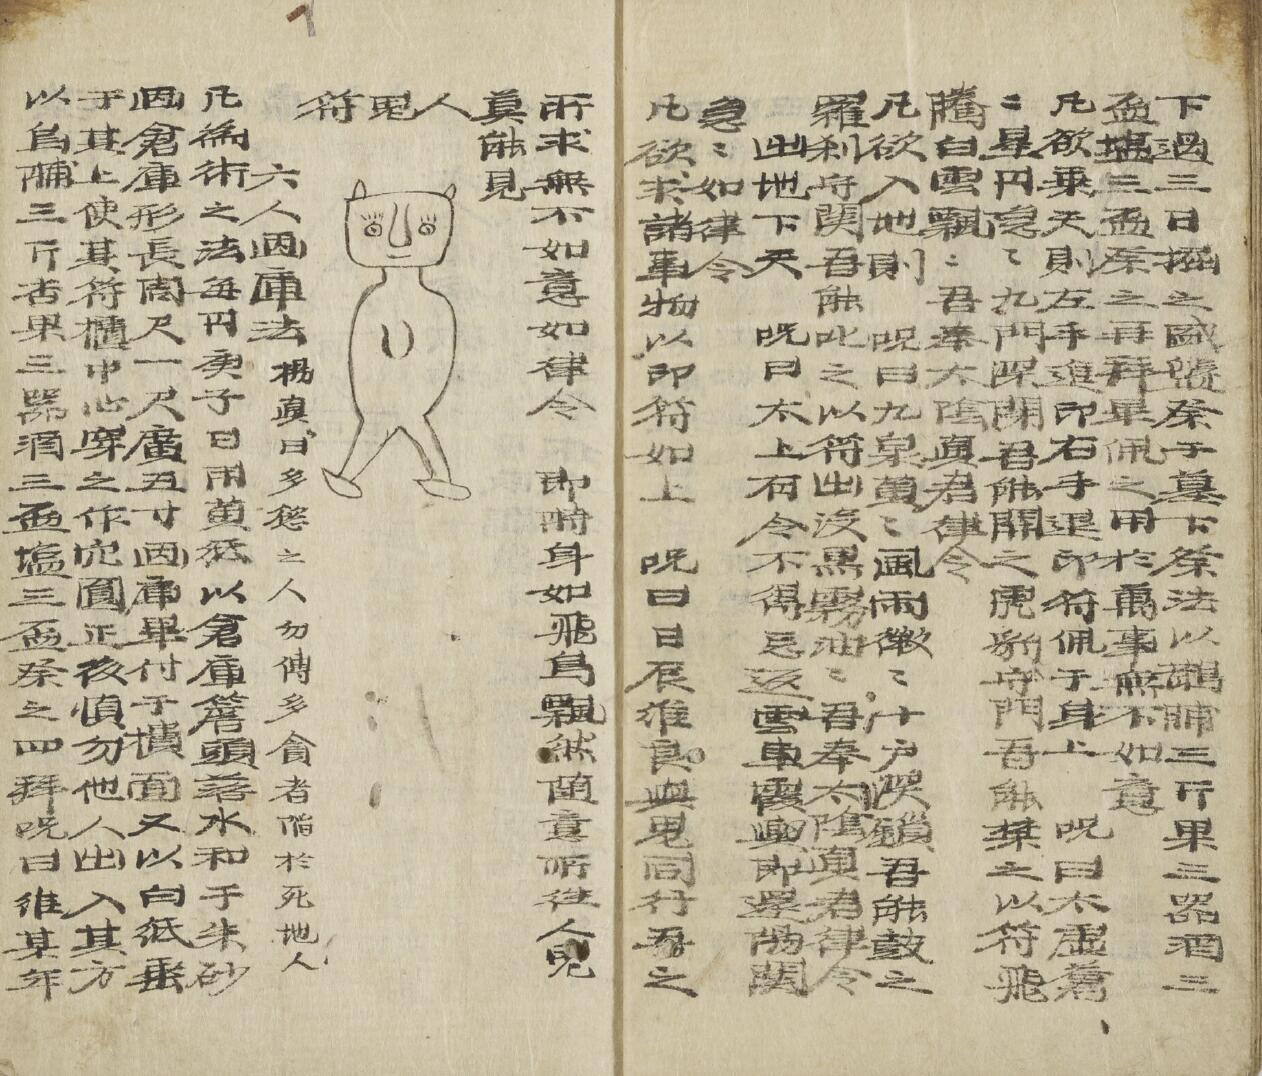 下過三日掘之盛 祭于墓下祭法以 脯三斤果三器酒三
盃塩三盃祭之再拜畢佩之用於萬事無不如意
凡欲乗天則左手進印右手退印符佩于身上 呪曰太虛蒼
〻星円 〻九門深閉吾能開之虎豹守門吾能禁之以符飛
騰白雲飄〻吾奉太陰眞君律令
凡欲入地則 呪曰九泉萬〻風雨微〻十户深鎖吾能鼓之
羅刹守関吾能叱之以符出沒黒霧油〻吾奉太陰眞君律令
出地下天 呪曰太上有令不得忘返雲車霞輿即還陽関
急〻如律令
凡欲求諸事物以印符如上 呪曰日辰維良與鬼同行吾之
所求無不如意如律令 即時身如飛鳥飄然隨意所往人皃
眞能見
人鬼符
六人因庫法 楊眞曰多慾之人勿傳多貪者陷於死地人
凡爲術之法每円庚子日用黄紙以倉庫簷頭落水和于朱砂
因倉庫形長周尺一尺廣五寸因庫畢付于樻面又以白紙垂
于其上使其符樻中心穿之作穴圓正後愼勿他人出入其方
以烏脯三斤杏果三器酒三盃塩三盃祭之四拜呪曰維某年